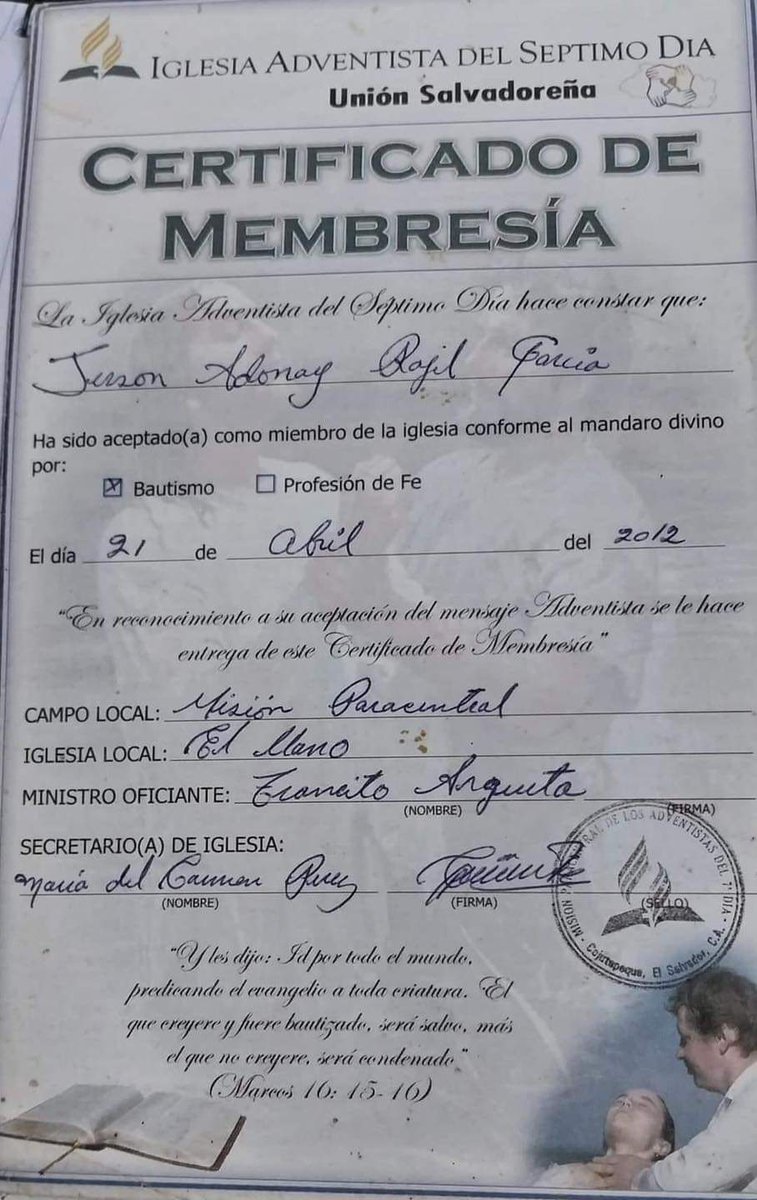 IGLESIA ADVENTISTA DEL SEPTIMO DIA
Unión Salvadoreña
CERTIFICADO DE
MEMBRESÍA
La Iglesia Adventista del Séptimo Día hace constar que:
Jerson Adonay Rajil García
Ha sido aceptado(a) como miembro de la iglesia conforme al mandaro divino
por:
☒ Bautismo ☐ Profesión de Fe
El día 21 de abril del 2012
"En reconocimiento a su aceptación del mensaje Adventista se le hace
entrega de este Certificado de Membresía"
CAMPO LOCAL: Misión Paracentral
IGLESIA LOCAL: El Llano
MINISTRO OFICIANTE: Trancito Argueta
(NOMBRE) (FIRMA)
SECRETARIO(A) DE IGLESIA:
María del Carmen
(NOMBRE) (FIRMA) (SELLO)
MISION PARACENTRAL DE LOS ADVENTISTAS DEL 7° DIA
Cojutepeque, El Salvador, C.A.
"Y les dijo: Id por todo el mundo,
predicando el evangelio a toda criatura. El
que creyere y fuere bautizado, será salvo, más
el que no creyere, será condenado."
(Marcos 16: 15-16)